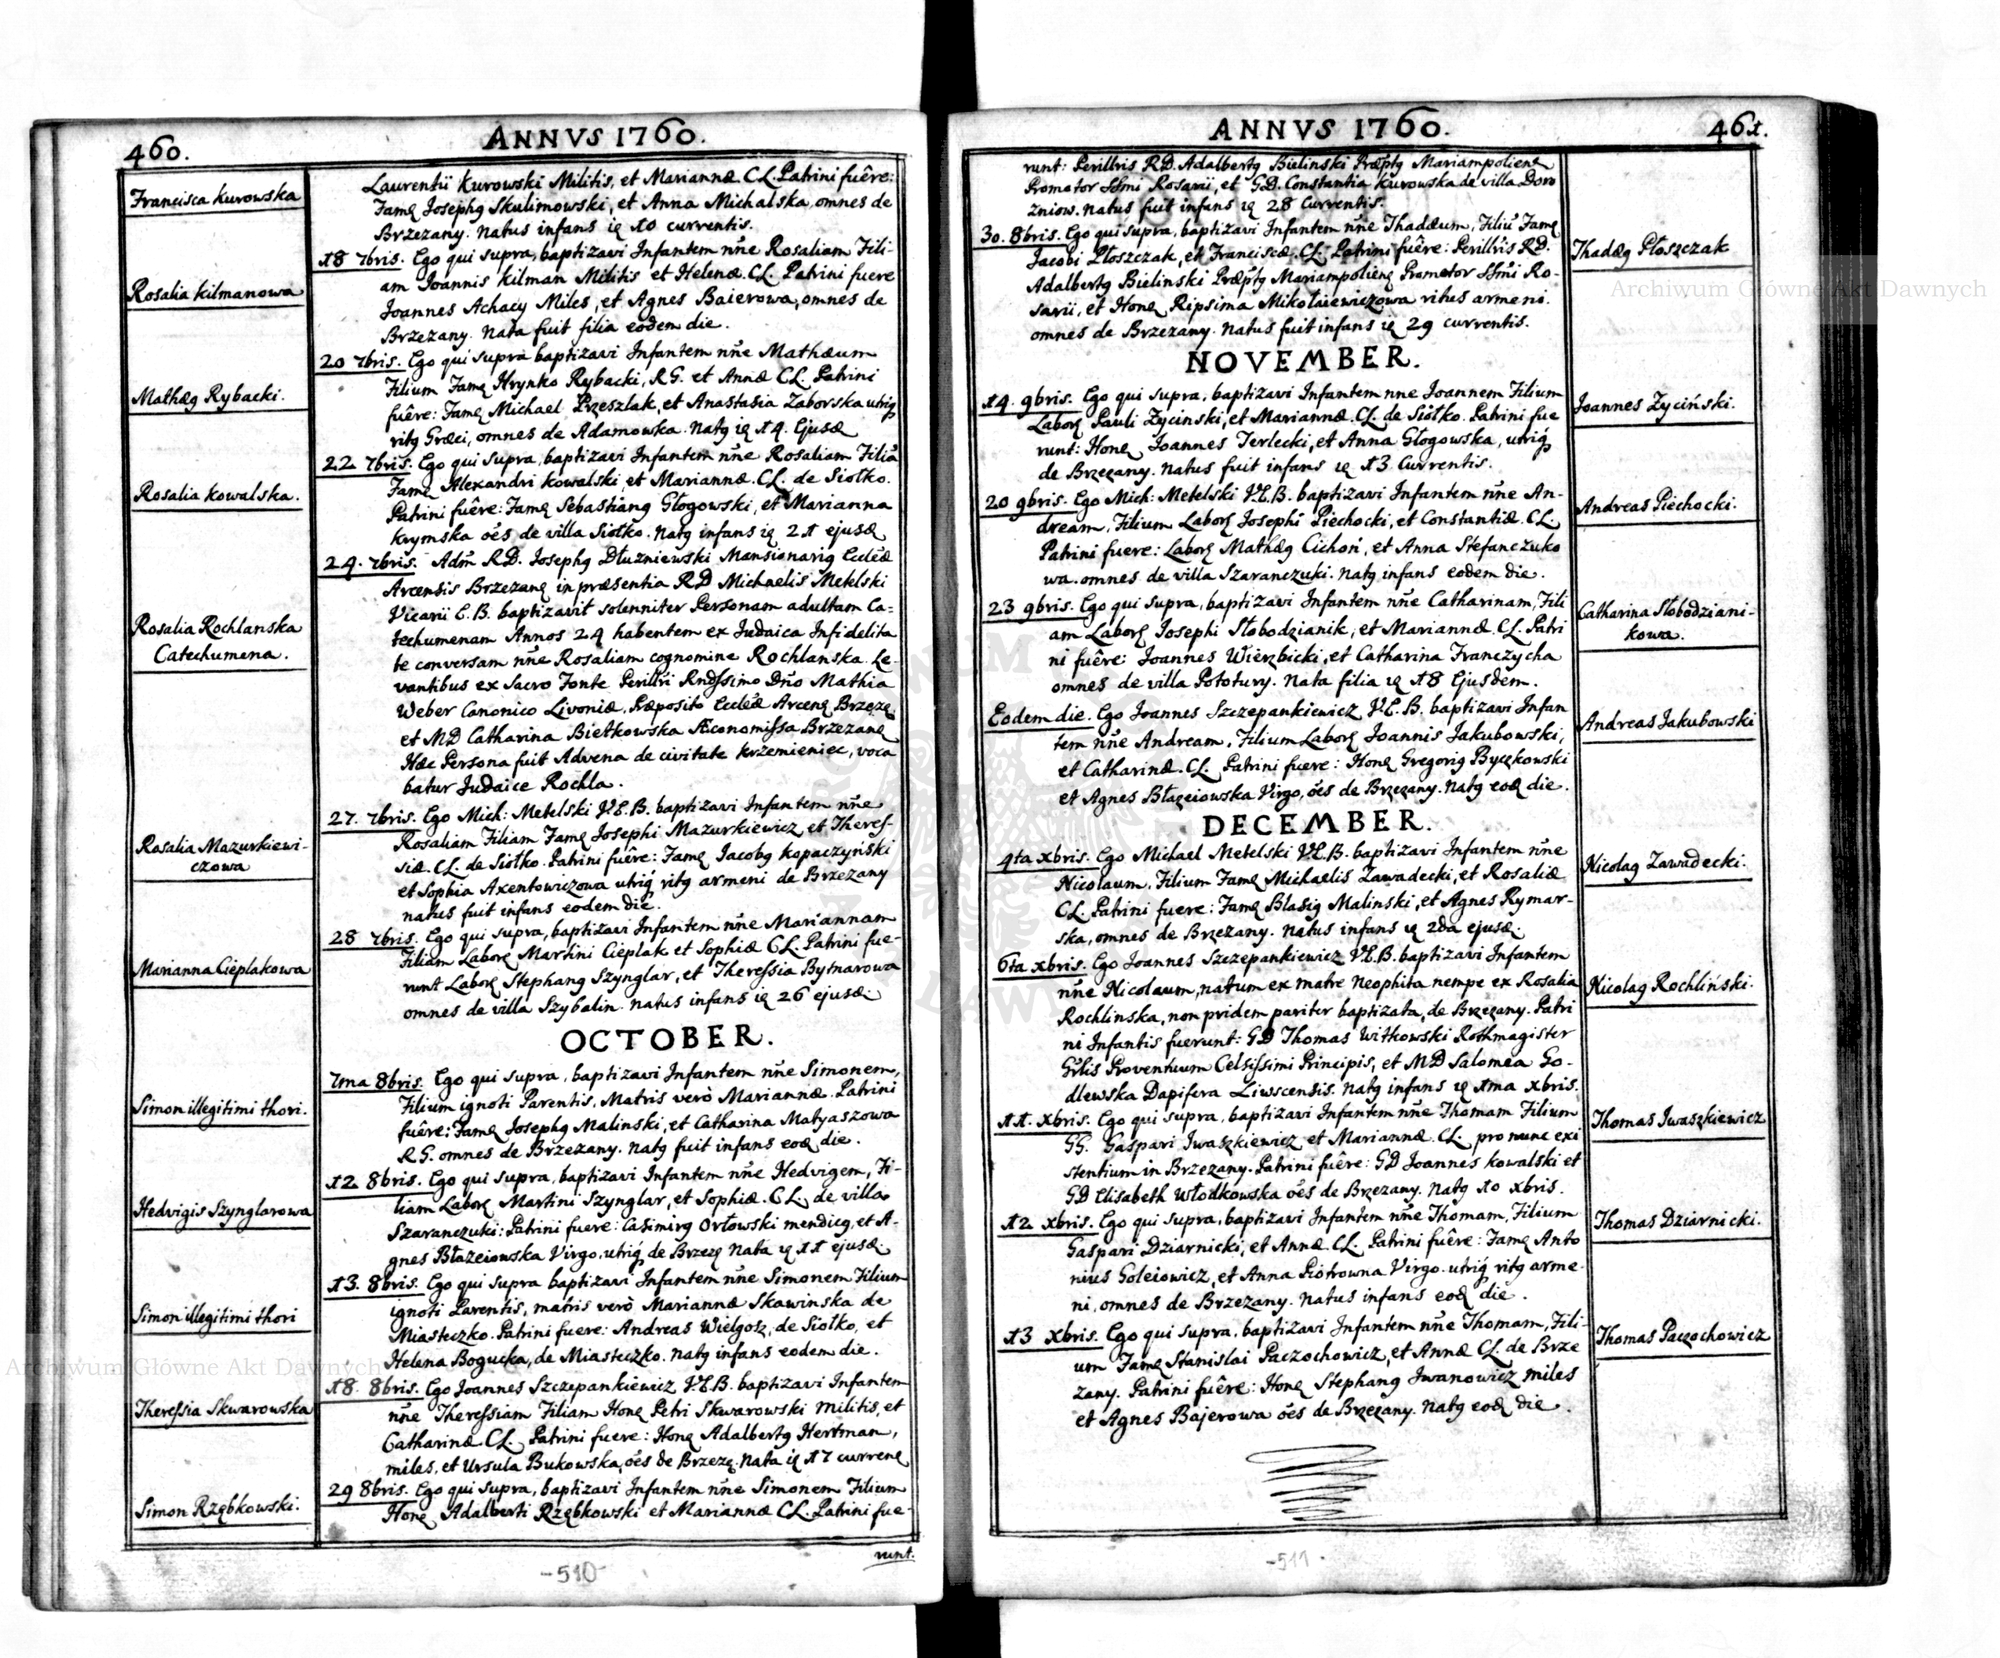 460.
ANNVS 1760.
Francisca Kurowska
Laurentii Kurowski Militis, et Mariannæ CL. Patrini fuêre:
Famꝫ Josephꝯ Skulimowski, et Anna Michalska, omnes de
Brzezany. Natus infans ie 10 currentis.
Rosalia Kilmanowa
18 7bris. Ego qui supra, baptizavi Infantem nñe Rosaliam Fili-
am Joannis Kilman Militis et Helenæ CL. Patrini fuere
Joannes Achacy Miles, et Agnes Baierowa, omnes de
Brzezany. Nata fuit filia eodem die.
Mathæꝯ Rybacki.
20 7bris. Ego qui supra baptizavi Infantem nñe Mathæum
Filium Famꝫ Hrynko Rybacki, R.G. et Annæ CL. Patrini
fuêre: Famꝫ Michael Przeszlak, et Anastasia Zaborska utriꝗ
ritꝯ Græci, omnes de Adamowka. Natꝯ ie 14. Ejusꝫ
Rosalia Kowalska.
22 7bris. Ego qui supra, baptizavi Infantem nñe Rosaliam Filiã
Famꝫ Alexandri Kowalski et Mariannæ. CL. de Siołko.
Patrini fuêre: Famꝫ Sebastianꝯ Głogowski, et Marianna
Krymska oẽs de villa Siołko. Natꝯ infans ie 21 ejusꝫ
Rosalia Rochlanska
Catechumena.
24. 7bris. Adm̃ RD. Josephꝯ Dłużniewski Mansionariꝯ Ecclẽæ
Arcensis Brzezanꝫ in præsentia RD Michaelis Metelski
Vicarii E.B. baptizavit solenniter Personam adultam Ca-
techumenam Annos 24 habentem ex Judaica Infidelita
te conversam nñe Rosaliam cognomine Rochlanska. Le-
vantibus ex Sacro Fonte Perillr̃i Rndssimo Dño Mathia
Weber Canonico Livoniæ, Præposito Ecclẽæ Arcenꝫ Brzezꝫ
et MD Catharina Biełkowska Æconomissa Brzezanꝫ
Hæc Persona fuit Advena de civitate Krzemieniec, voca
batur Judaice Rochla.
Rosalia Mazurkiewi-
czowa
27. 7bris. Ego Mich: Metelski V.E.B. baptizavi Infantem nñe
Rosaliam Filiam Famꝫ Josephi Mazurkiewicz et Theres-
siæ. CL. de Siołko. Patrini fuêre: Famꝫ Jacobꝯ Kopaczyński
et Sophia Axentowiczowa utriꝗ ritꝯ armeni de Brzezany
natus fuit infans eodem die.
Marianna Cieplakowa
28 7bris. Ego qui supra, baptizavi Infantem nñe Mariannam
Filiam Laborꝫ Martini Cieplak et Sophiæ CL. Patrini fue-
runt Laborꝫ Stephanꝯ Szynglar, et Theressia Bytnarowa
omnes de villa Szybalin. Natus infans ie 26 ejusꝫ.
OCTOBER.
Simon illegitimi thori.
7ma 8bris. Ego qui supra, baptizavi Infantem nñe Simonem,
Filium ignoti Parentis, Matris verò Mariannæ. Patrini
fuêre: Famꝫ Josephꝯ Malinski, et Catharina Matyaszowa
R.G. omnes de Brzezany. Natꝯ fuit infans eoꝫ die.
Hedvigis Szynglarowa
12 8bris. Ego qui supra, baptizavi Infantem nñe Hedvigem, Fi-
liam Laborꝫ Martini Szynglar, et Sophiæ. CL. de villa
Szaranczuki: Patrini fuere: Casimirꝯ Orłowski mendicꝯ, et A-
gnes Błazeiowska Virgo. utriꝗ de Brzezꝫ Nata ie 11 ejusꝫ.
Simon illegitimi thori
13. 8bris. Ego qui supra baptizavi Infantem nñe Simonem Filium
ignoti Parentis, matris verò Mariannæ Skawinska de
Miasteczko. Patrini fuere: Andreas Wielgosz, de Siołko, et
Helena Bogucka, de Miasteczko. Natꝯ infans eodem die.
Theressia Skwarowska
18. 8bris. Ego Joannes Szczepankiewicz V.E.B. baptizavi Infantem
nñe Theressiam Filiam Honꝫ Petri Skwarowski militis, et
Catharinæ CL. Patrini fuere: Honꝫ Adalbertꝯ Hertman,
miles, et Ursula Bukowska, oẽs de Brzezꝫ. Nata ie 17 currenꝫ
Simon Rząbkowski.
29 8bris. Ego qui supra, baptizavi Infantem nñe Simonem Filium
Honꝫ Adalberti Rząbkowski et Mariannæ CL. Patrini fue-
runt.
-510-
ANNVS 1760.
461.
runt: Perillr̃is RD. Adalbertꝯ Bielinski Præptꝯ Mariampolienꝫ
Promotor SSmi Rosarii, et GD. Constantia Kurowska de villa Doro
zniow. Natus fuit infans ie 28 Currentis.
Thadæꝯ Płoszczak
30. 8bris. Ego qui supra, baptizavi Infantem nñe Thaddæum, Filiũ Famꝫ
Jacobi Płoszczak, et Franciscæ. CL. Patrini fuêre: Perillr̃is RD.
Adalbertꝯ Bielinski Præptꝯ Mariampolienꝫ Promotor SSmi Ro-
sarii, et Honꝫ Ripsima Mikołaiewiczowa ritus armeni.
omnes de Brzezany. Natus fuit infans ie 29 currentis.
NOVEMBER.
Joannes Zyciński.
14. 9bris. Ego qui Supra, baptizavi Infantem nne Joannem Filium
Laborꝫ Pauli Zycinski, et Mariannæ. CL. de Siołko. Patrini fue
runt: Honꝫ Joannes Terlecki, et Anna Głogowska, utriꝗ
de Brzezany. Natus fuit infans ie 13 Currentis.
Andreas Piechocki.
20 9bris. Ego Mich: Metelski V.E.B. baptizavi Infantem nñe An-
dream, Filium Laborꝫ Josephi Piechocki, et Constantiæ. CL.
Patrini fuere: Laborꝫ Mathæꝯ Cichoń, et Anna Stefanczuko
wa. omnes de villa Szaranczuki. Natꝯ infans eodem die.
Catharina Słobodziani-
kowa.
23 9bris. Ego qui supra, baptizavi Infantem nñe Catharinam, Fili
am Laborꝫ Josephi Słobodzianik, et Mariannæ. CL. Patri
ni fuêre: Joannes Wierzbicki, et Catharina Franczycha
omnes de villa Pototury. Nata filia ie 18 Ejusdem.
Andreas Jakubowski
Eodem die. Ego Joannes Szczepankiewicz V.E.B. baptizavi Infan
tem nñe Andream, Filium Laborꝫ Joannis Jakubowski,
et Catharinæ. CL. Patrini fuere: Honꝫ Gregoriꝯ Byczkowski
et Agnes Błazeiowska Virgo, oẽs de Brzezany. Natꝯ eoꝫ die.
DECEMBER.
Nicolaꝯ Zawadecki.
4ta xbris. Ego Michael Metelski V.E.B. baptizavi Infantem nñe
Nicolaum, Filium Famꝫ Michaelis Zawadecki, et Rosaliæ
CL. Patrini fuere: Famꝫ Blasiꝯ Malinski, et Agnes Rymar-
ska, omnes de Brzezany. Natus infans ie 2da ejusꝫ.
Nicolaꝯ Rochliński.
6ta xbris. Ego Joannes Szczepankiewicz V.E.B. baptizavi Infantem
nñe Nicolaum, natum ex matre Neophita nempe ex Rosalia
Rochlinska, non pridem pariter baptizata, de Brzezany. Patri
ni Infantis fuerunt: GD Thomas Witkowski Rothmagister
Gr̃lis Proventuum Celsissimi Principis, et MD Salomea Go-
dlewska Dapifera Liwscensis. Natꝯ infans ie 1ma xbris.
Thomas Iwaszkiewicz
11. xbris. Ego qui supra, baptizavi Infantem nñe Thomam Filium
GG. Gaspari Iwaszkiewicz et Mariannæ. CL. pro nunc exi
stentium in Brzezany. Patrini fuêre: GD Joannes Kowalski et
GD Elisabeth Włodkowska oẽs de Brzezany. Natꝯ 10 xbris.
Thomas Dziarnicki.
12 xbris. Ego qui supra, baptizavi Infantem nñe Thomam, Filium
Gaspari Dziarnicki, et Annæ CL. Patrini fuêre: Famꝫ Anto
nius Goleiowicz, et Anna Piotrowna Virgo. utriꝗ ritꝯ arme-
ni, omnes de Brzezany. Natus infans eoꝫ die.
Thomas Paczochowicz
13 xbris. Ego qui supra, baptizavi Infantem nñe Thomam, Fili-
um Famꝫ Stanislai Paczochowicz, et Annæ CL. de Brze
zany. Patrini fuêre: Honꝫ Stephanꝯ Iwanowicz miles
et Agnes Bajerowa oẽs de Brzezany. Natꝯ eoꝫ die.
-511-
Archiwum Główne Akt Dawnych
Archiwum Główne Akt Dawnych